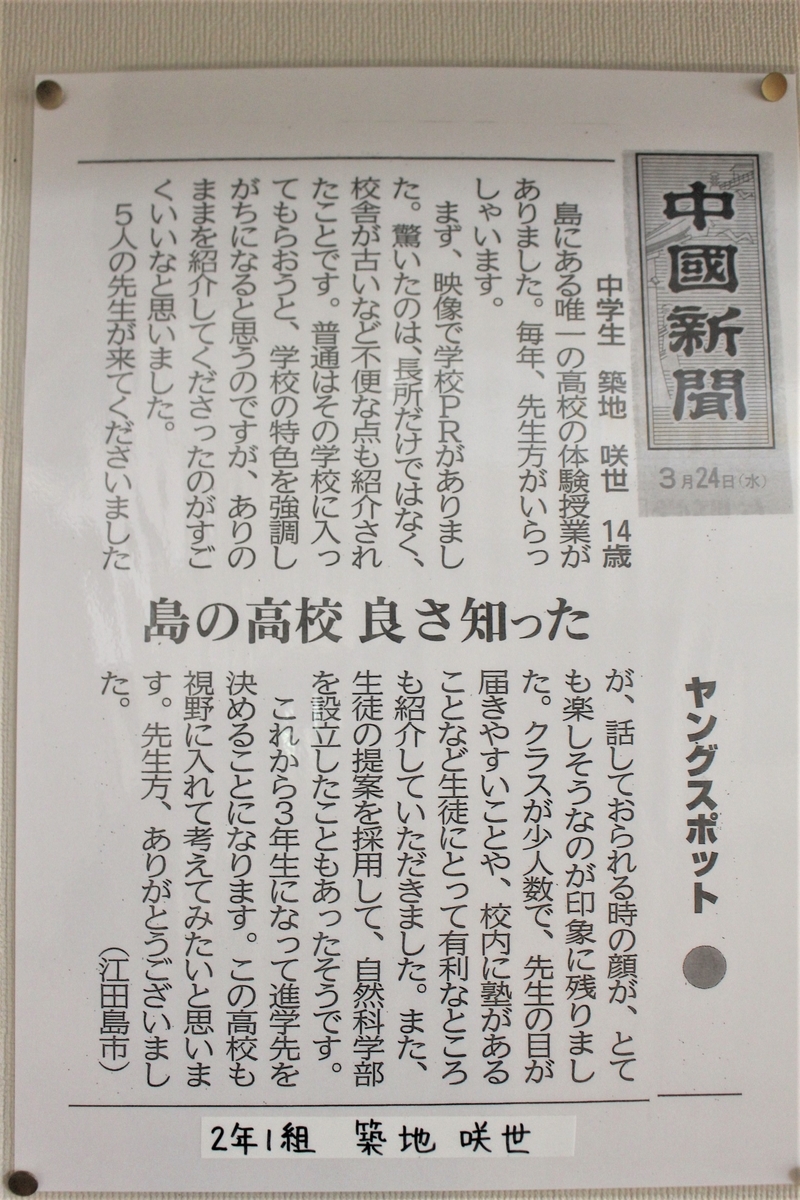 中國新聞
3月24日(水)
ヤングスポット
島の高校 良さ知った
中学生 築地 咲世 14歳
島にある唯一の高校の体験授業が
ありました。毎年、先生方がいらっ
しゃいます。
まず、映像で学校PRがありまし
た。驚いたのは、長所だけではなく、
校舎が古いなど不便な点も紹介され
たことです。普通はその学校に入っ
てもらおうと、学校の特色を強調し
がちになると思うのですが、ありの
ままを紹介してくださったのがすご
くいいなと思いました。
5人の先生が来てくださいました
が、話しておられる時の顔が、とて
も楽しそうなのが印象に残りまし
た。クラスが少人数で、先生の目が
届きやすいことや、校内に塾がある
ことなど生徒にとって有利なところ
も紹介していただきました。また、
生徒の提案を採用して、自然科学部
を設立したこともあったそうです。
これから3年生になって進学先を
決めることになります。この高校も
視野に入れて考えてみたいと思いま
す。先生方、ありがとうございまし
た。
(江田島市)
2年1組 築地 咲世